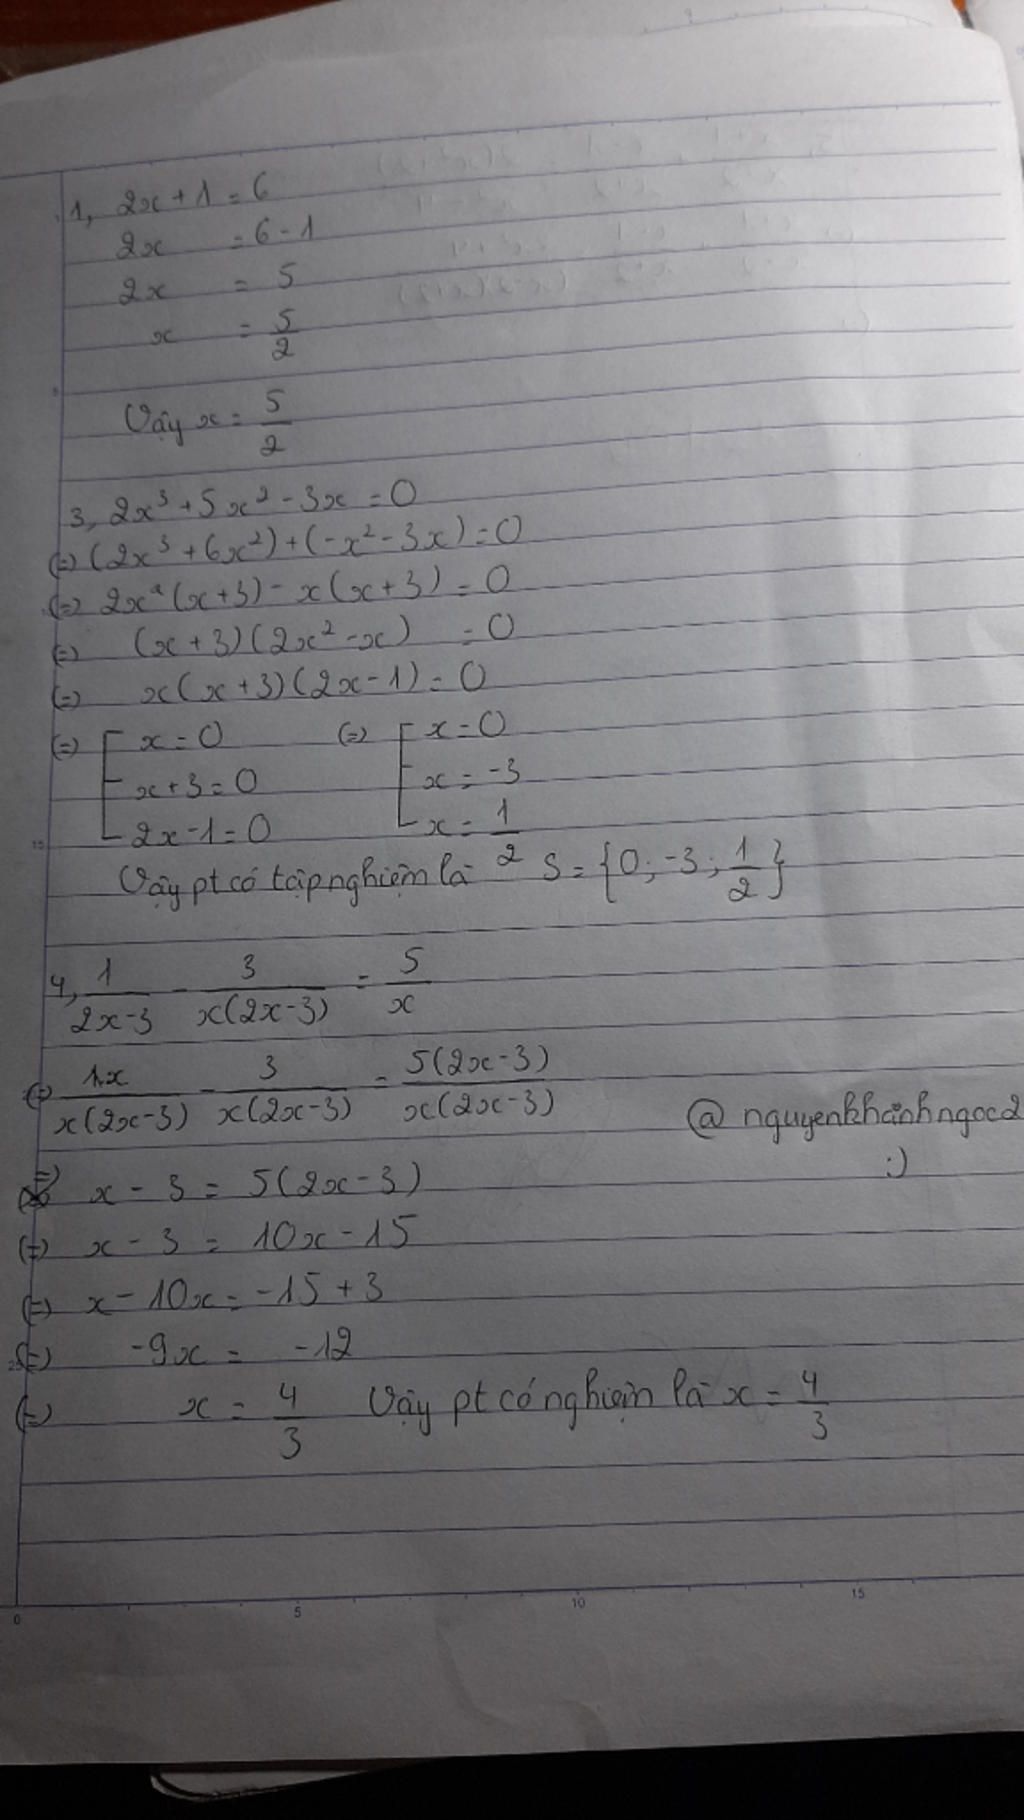 1, 2x + 1 = 6
2x = 6 - 1
2x = 5
x = 5/2
Vậy x = 5/2
3, 2x³ + 5x² - 3x = 0
(=) (2x³ + 6x²) + (-x² - 3x) = 0
(=) 2x²(x + 3) - x(x + 3) = 0
(=) (x + 3)(2x² - x) = 0
(=) x(x + 3)(2x - 1) = 0
(=) [ x = 0 (=) [ x = 0
x + 3 = 0 x = -3
2x - 1 = 0 x = 1/2
Vậy pt có tập nghiệm là S = {0; -3; 1/2}
4, 1/(2x-3) - 3/(x(2x-3)) = 5/x
(=) 1.x/(x(2x-3)) - 3/(x(2x-3)) = 5(2x-3)/(x(2x-3))
@ nguyenkhanhngoc2
:)
=) x - 3 = 5(2x - 3)
(=) x - 3 = 10x - 15
(=) x - 10x = -15 + 3
(=) -9x = -12
(=) x = 4/3 Vậy pt có nghiệm là x = 4/3
0 5 10 15